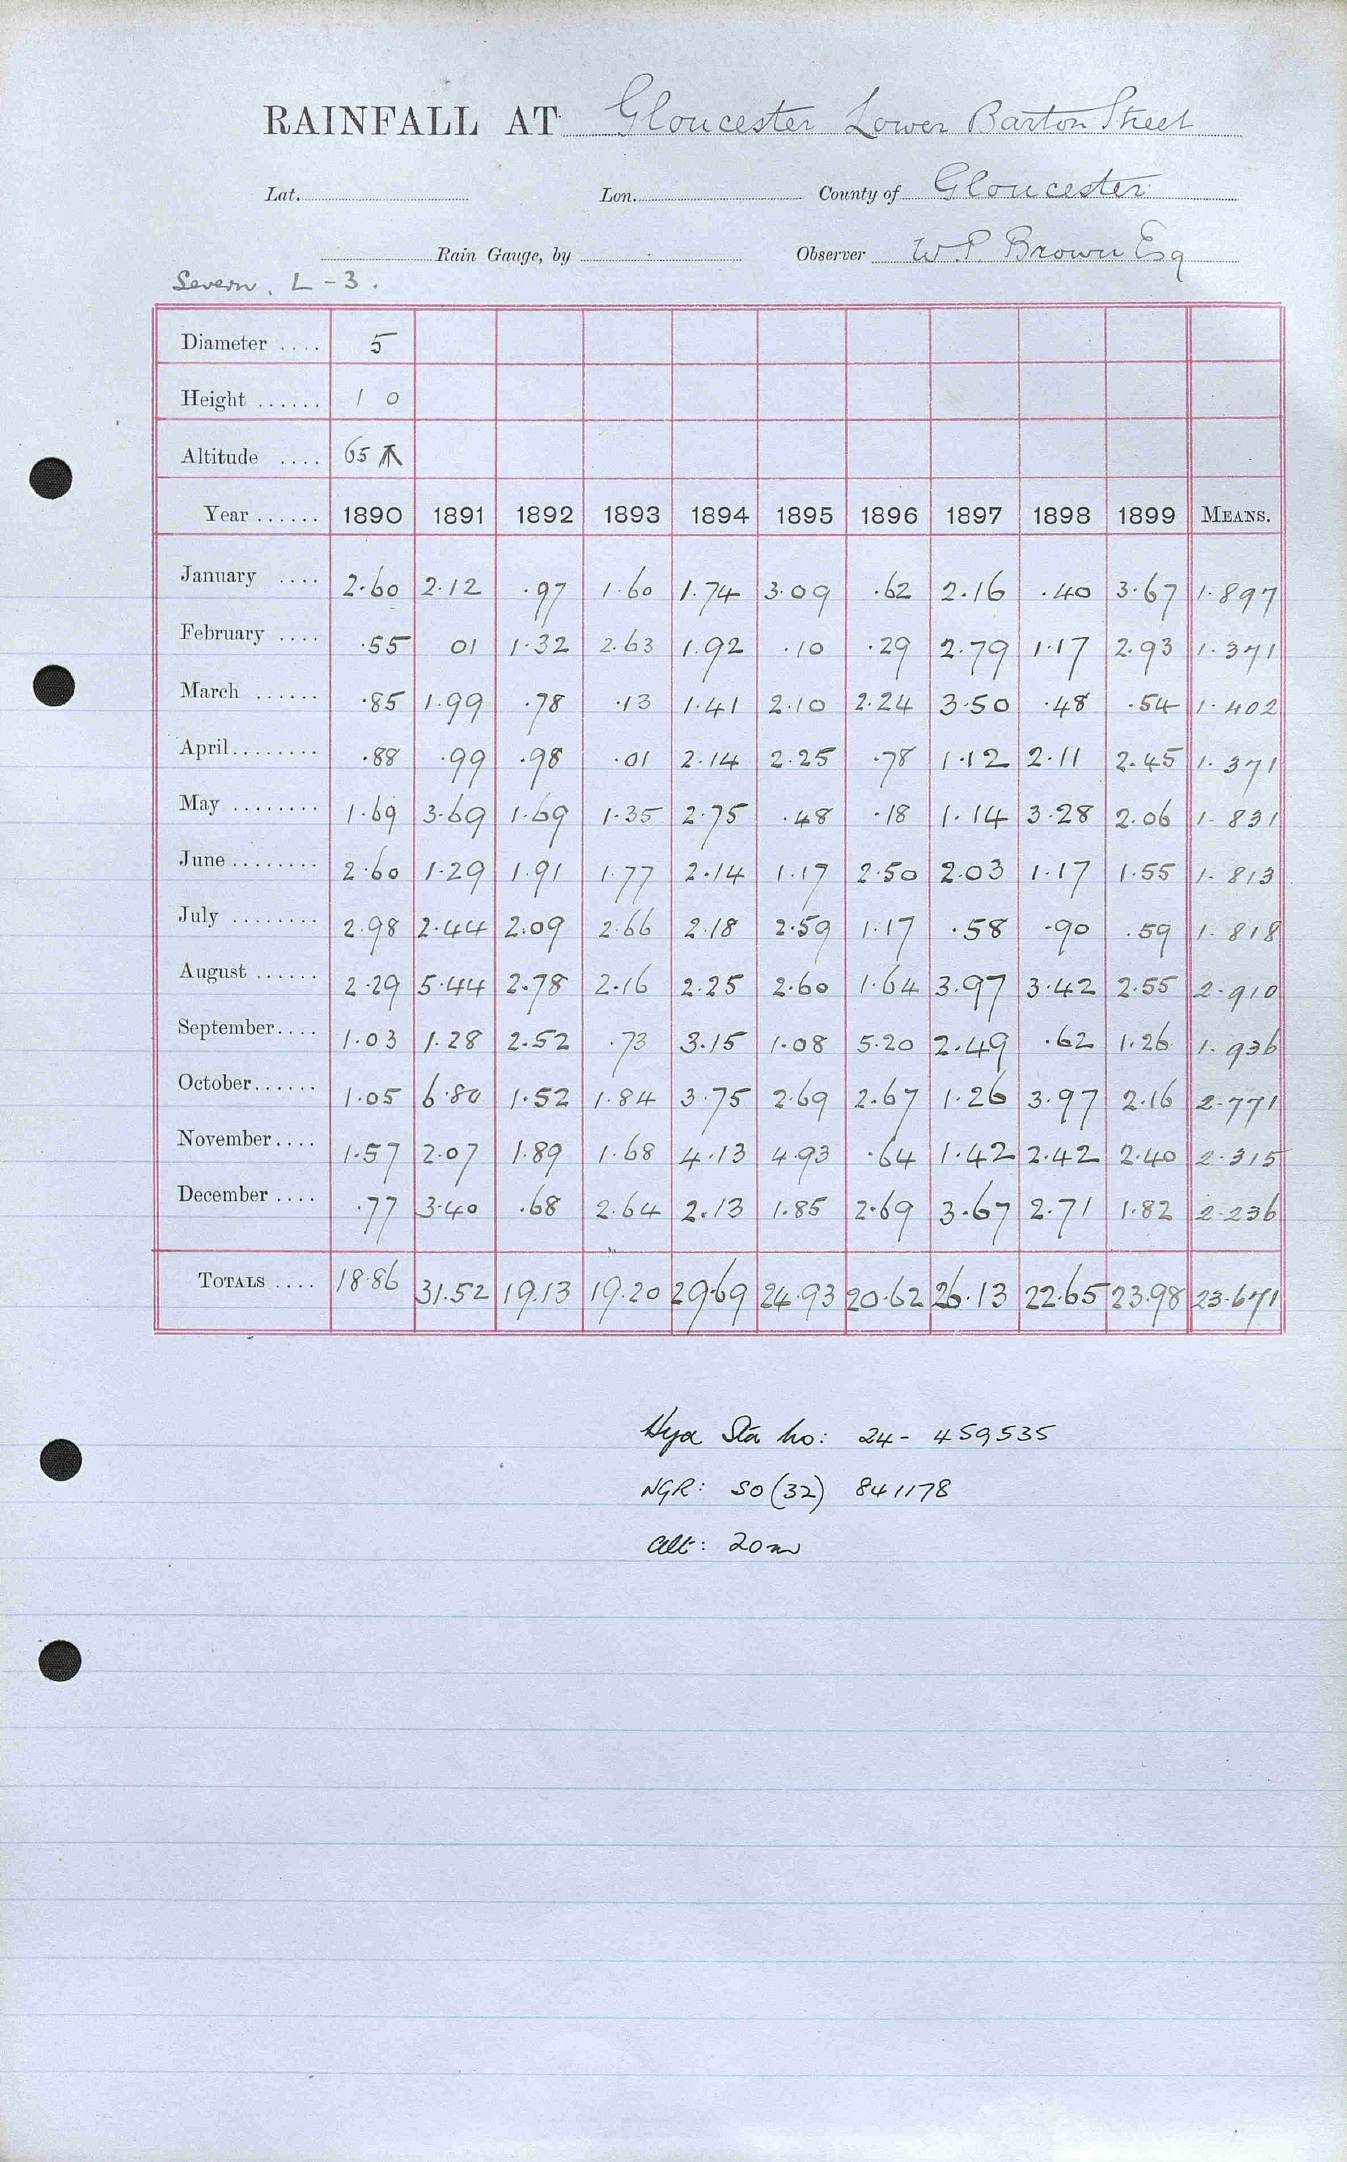 RAINFALL AT Gloucester Lower Barton Street
Lat. Lon. County of Gloucester
Rain Gauge, by Observer W.P. Brown Esq
Severn. L-3.
Diameter .... 5
Height ...... 1 0
Altitude .... 65
Year ...... 1890 1891 1892 1893 1894 1895 1896 1897 1898 1899 MEANS.
January .... 2.60 2.12 .97 1.60 1.74 3.09 .62 2.16 .40 3.67 1.897
February .... .55 01 1.32 2.63 1.92 .10 .29 2.79 1.17 2.93 1.371
March ...... .85 1.99 .78 .13 1.41 2.10 2.24 3.50 .48 .54 1.402
April........ .88 .99 .98 .01 2.14 2.25 .78 1.12 2.11 2.45 1.371
May ........ 1.69 3.69 1.69 1.35 2.75 .48 .18 1.14 3.28 2.06 1.831
June ........ 2.60 1.29 1.91 1.77 2.14 1.17 2.50 2.03 1.17 1.55 1.813
July ........ 2.98 2.44 2.09 2.66 2.18 2.59 1.17 .58 .90 .59 1.818
August ...... 2.29 5.44 2.78 2.16 2.25 2.60 1.64 3.97 3.42 2.55 2.910
September.... 1.03 1.28 2.52 .73 3.15 1.08 5.20 2.49 .62 1.26 1.936
October...... 1.05 6.80 1.52 1.84 3.75 2.69 2.67 1.26 3.97 2.16 2.771
November.... 1.57 2.07 1.89 1.68 4.13 4.93 .64 1.42 2.42 2.40 2.315
December .... .77 3.40 .68 2.64 2.13 1.85 2.69 3.67 2.71 1.82 2.236
TOTALS .... 18.86 31.52 19.13 19.20 29.69 24.93 20.62 26.13 22.65 23.98 23.671
Sta No: 24- 459535
NGR: SO (32) 841178
Alt: 20m